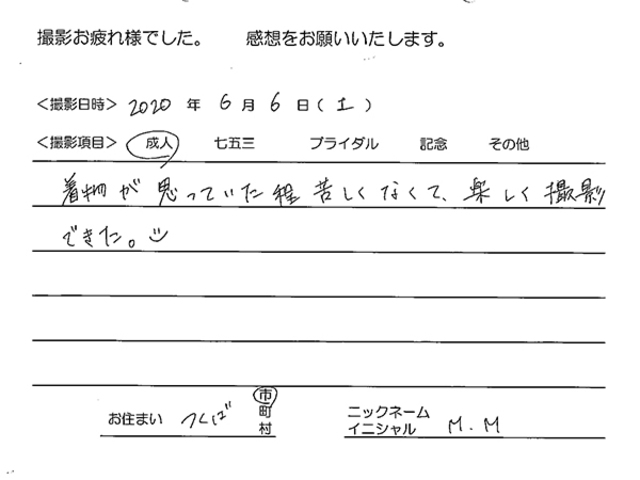 撮影お疲れ様でした。 感想をお願いいたします。
<撮影日時> 2020 年 6 月 6 日(土)
<撮影項目> 成人 七五三 ブライダル 記念 その他
着物が思っていた程苦しくなくて、楽しく撮影
できた。
お住まい つくば 市 町 村 ニックネーム イニシャル M.M